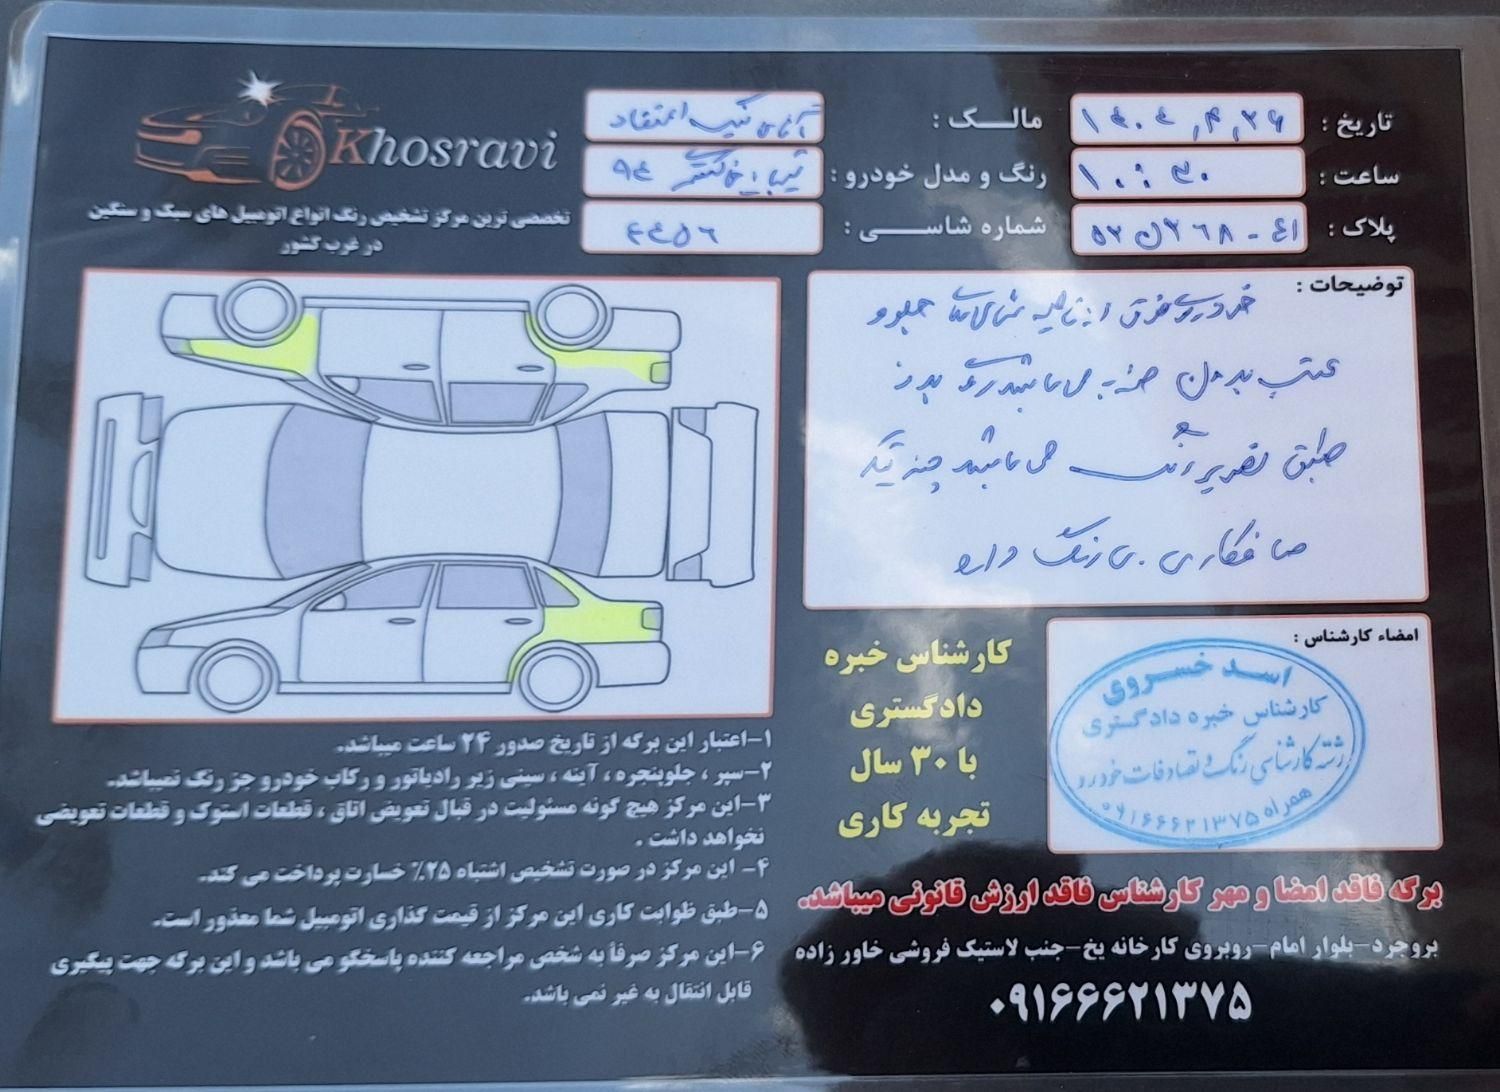 Khosravi
تخصصی ترین مرکز تشخیص رنگ انواع اتومبیل های سبک و سنگین
در غرب کشور
تاریخ : ۱۴۰۴,۴,۲۶
ساعت : ۱۰:۳۰
پلاک : ۵۲ل۲۶۸-۴۱
مالک : آقای اعتقاد
رنگ و مدل خودرو : تیبا خاکستری ۹۴
شماره شاسی :
توضیحات :
خودروی فوق جلو و
عقب بدون ضربه می باشد رنگ بدنه
طبق تصویر رنگ می باشد چند تیکه
صافکاری بی رنگ دارد
کارشناس خبره
دادگستری
با ۳۰ سال
تجربه کاری
امضاء کارشناس :
اسد خسروی
کارشناس خبره دادگستری
رشته کارشناسی رنگ و تصادفات خودرو
همراه ۰۹۱۶۶۶۲۱۳۷۵
۱-اعتبار این برگه از تاریخ صدور ۲۴ ساعت میباشد.
۲-سپر ، جلوپنجره ، آینه ، سینی زیر رادیاتور و رکاب خودرو جز رنگ نمیباشد.
۳-این مرکز هیچ گونه مسئولیت در قبال تعویض اتاق ، قطعات استوک و قطعات تعویضی
نخواهد داشت .
۴- این مرکز در صورت تشخیص اشتباه ۲۵٪ خسارت پرداخت می کند.
۵-طبق ظوابت کاری این مرکز از قیمت گذاری اتومبیل شما معذور است.
۶-این مرکز صرفاً به شخص مراجعه کننده پاسخگو می باشد و این برگه جهت پیگیری
قابل انتقال به غیر نمی باشد.
برگه فاقد امضا و مهر کارشناس فاقد ارزش قانونی میباشد.
بروجرد-بلوار امام-روبروی کارخانه یخ-جنب لاستیک فروشی خاور زاده
۰۹۱۶۶۶۲۱۳۷۵